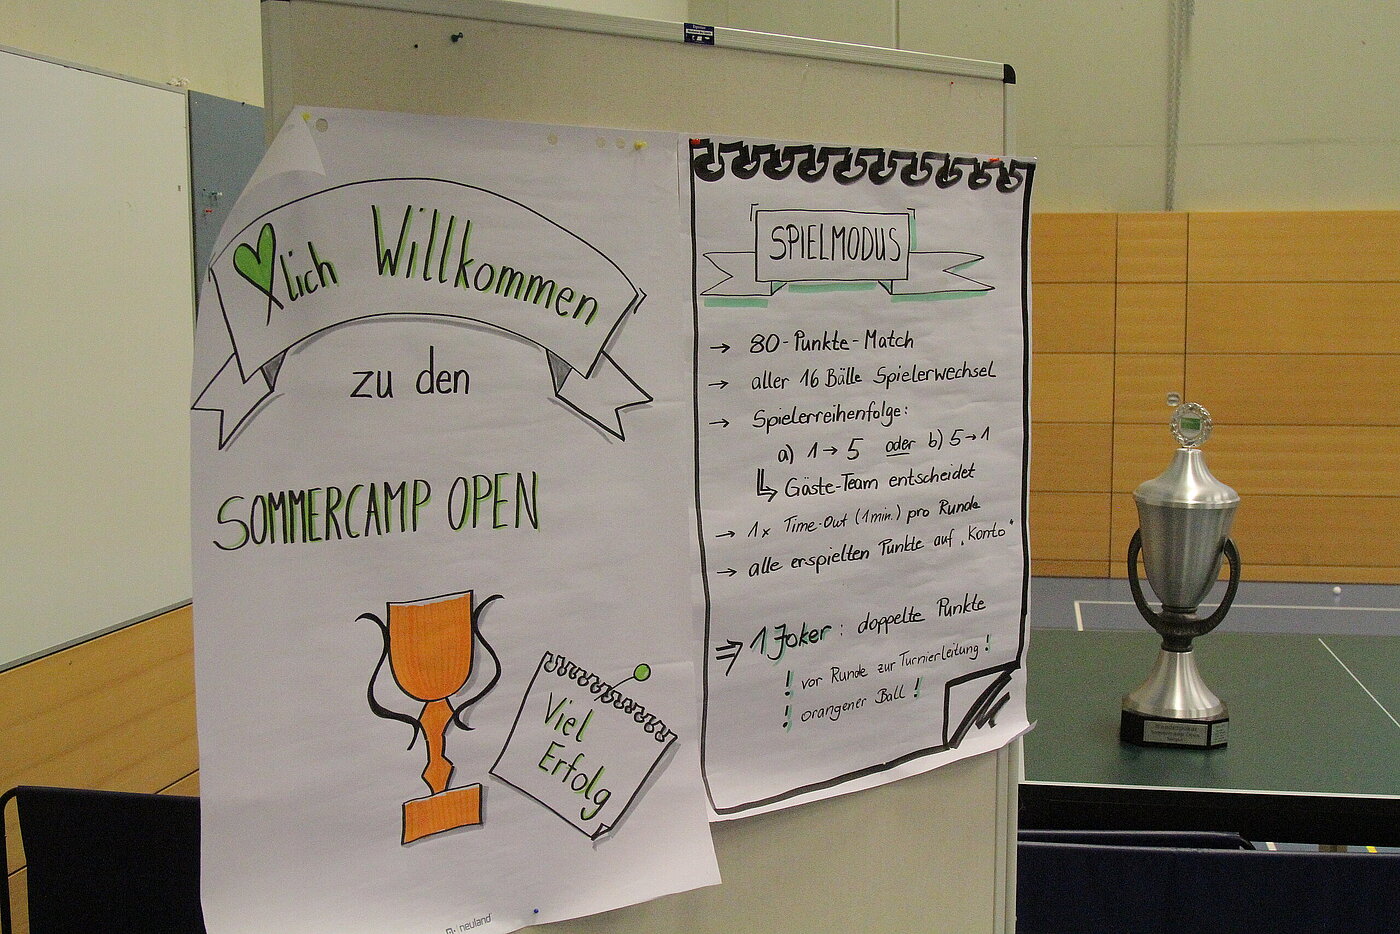 lich Willkommen
zu den
SOMMERCAMP OPEN
Viel
Erfolg
neuland
SPIELMODUS
→ 80-Punkte-Match
→ aller 16 Bälle Spielerwechsel
→ Spielerreihenfolge:
a) 1→5 oder b) 5→1
↳ Gäste-Team entscheidet
→ 1x Time-Out (1min.) pro Runde
→ alle erspielten Punkte auf "Konto"
⇒ 1 Joker: doppelte Punkte
! vor Runde zur Turnierleitung!
! orangener Ball!